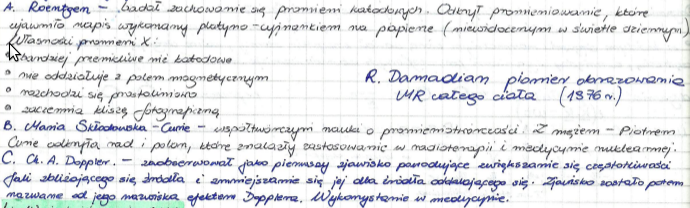 A. Roentgen – badał zachowanie się promieni katodowych. Odkrył promieniowanie, które
ujawniło napis wykonany platyno-cyjnankiem na papierze (niewidocznym w świetle dziennym)
Własności promieni X:
bardziej przenikliwe niż katodowe
• nie oddziałuje z polem magnetycznym
• rozchodzi się prostoliniowo
• zaciemnia kliszę fotograficzną
R. Damadian pionier obrazowania
MR całego ciała (1976 r.)
B. Maria Skłodowska-Curie – współtwórczyni nauki o promieniotwórczości. Z mężem – Piotrem
Curie odkryła rad i polon, które znalazły zastosowanie w radioterapii i medycynie nuklearnej.
C. Ch. A. Doppler. – zaobserwował jako pierwszy zjawisko powodujące zwiększanie się częstotliwości
fali zbliżającego się źródła i zmniejszanie się jej dla źródła oddalającego się. Zjawisko zostało potem
nazwane od jego nazwiska efektem Dopplera. Wykorzystanie w medycynie.